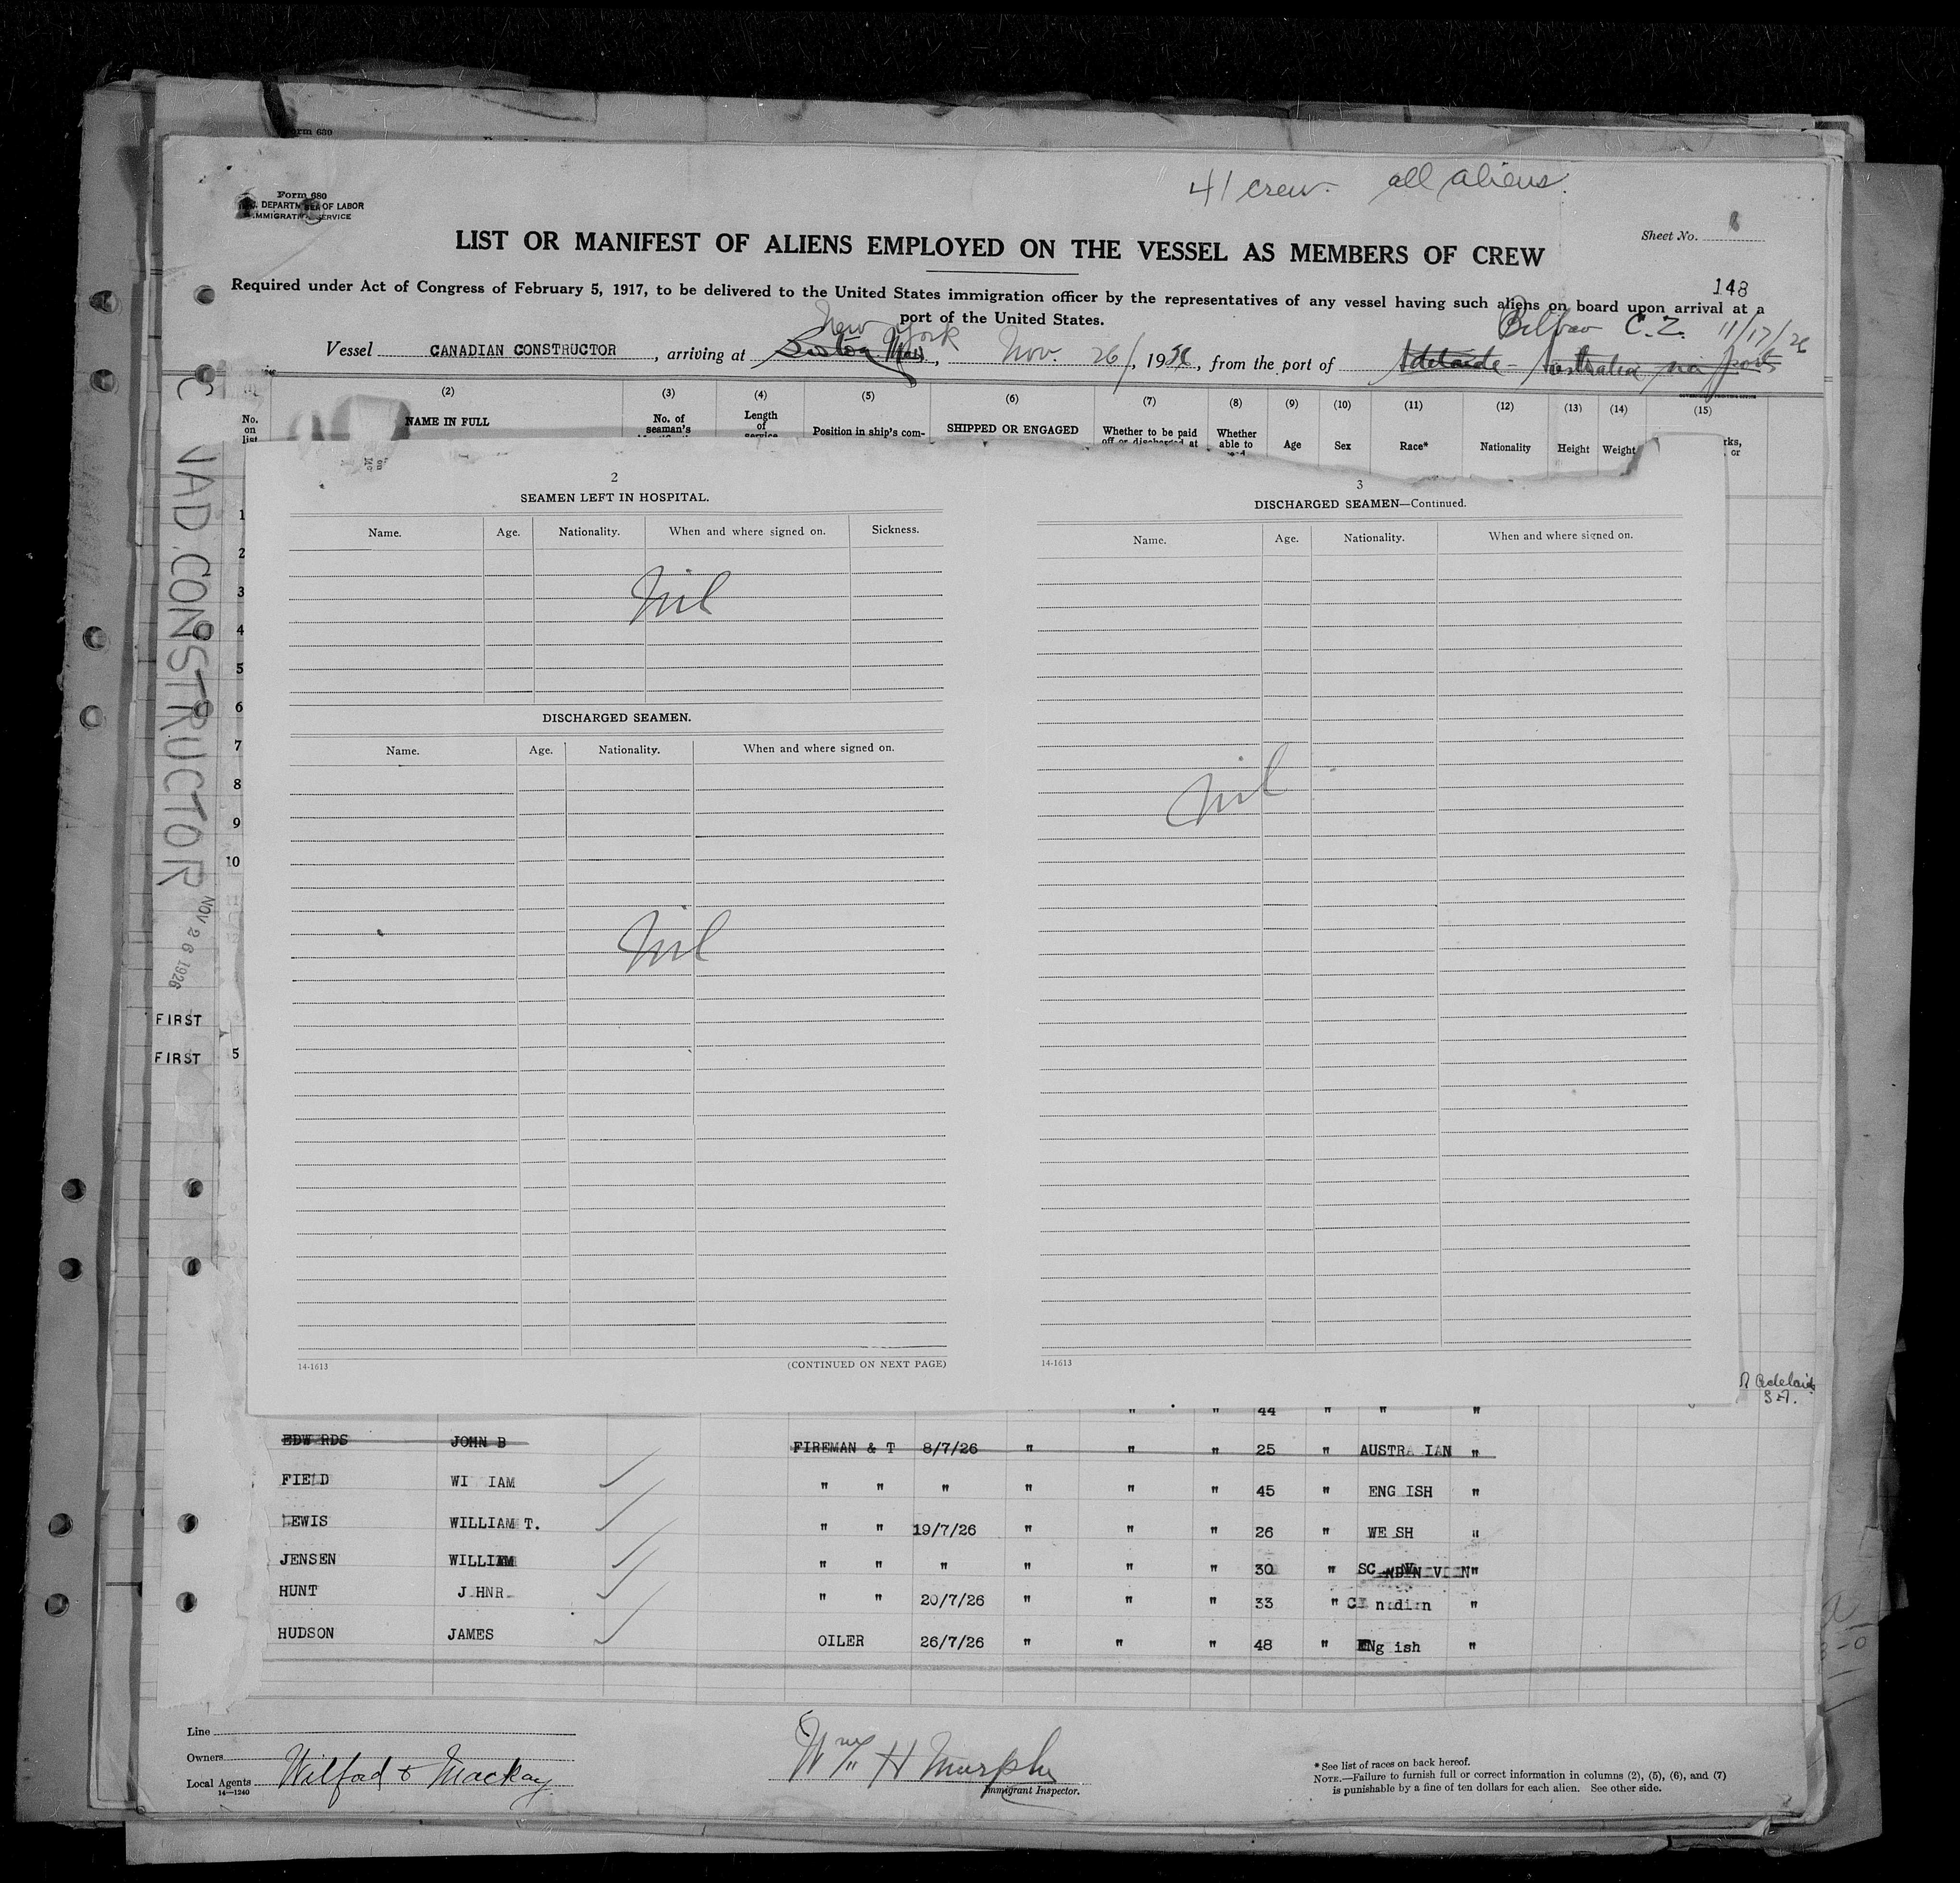 Form 630
41 crew. all aliens.
Form 680
U.S. DEPARTMENT OF LABOR
IMMIGRATION SERVICE
Sheet No.
LIST OR MANIFEST OF ALIENS EMPLOYED ON THE VESSEL AS MEMBERS OF CREW
148
Required under Act of Congress of February 5, 1917, to be delivered to the United States immigration officer by the representatives of any vessel having such aliens on board upon arrival at a
port of the United States.
New York
C.Z. 11/17/26
Vessel CANADIAN CONSTRUCTOR, arriving at Boston Mass, Nov. 26/, 1926, from the port of Adelaide - Australia via ports
(2) (3) (4) (5) (6) (7) (8) (9) (10) (11) (12) (13) (14) (15)
No. on list
NAME IN FULL
No. of seaman's
Length of service
Position in ship's com-
SHIPPED OR ENGAGED
Whether to be paid off or discharged at
Whether able to
Age
Sex
Race*
Nationality
Height
Weight
CANAD. CONSTRUCTOR
NOV 26 1926
FIRST
FIRST
1
2
3
4
5
6
7
8
9
10
5
2
SEAMEN LEFT IN HOSPITAL.
Name. Age. Nationality. When and where signed on. Sickness.
Nil
DISCHARGED SEAMEN.
Name. Age. Nationality. When and where signed on.
Nil
14-1613 (CONTINUED ON NEXT PAGE)
3
DISCHARGED SEAMEN—Continued.
Name. Age. Nationality. When and where signed on.
Nil
14-1613
Adelaide
S.A.
" " 44 " " "
EDW RDS JOHN B FIREMAN & T 8/7/26 " " " 25 " AUSTRA IAN "
FIELD WI IAM " " " " " " 45 " ENG ISH "
LEWIS WILLIAM T. " " 19/7/26 " " " 26 " WE SH "
JENSEN WILLIAM " " " " " " 30 " SC NDIN VI N "
HUNT J HN R " " 20/7/26 " " " 33 " C n di n "
HUDSON JAMES OILER 26/7/26 " " " 48 " ENg ish "
Line
Owners
Local Agents Wilford & Mackay
14—1240
Wm H Murphy
Immigrant Inspector.
* See list of races on back hereof.
NOTE.—Failure to furnish full or correct information in columns (2), (5), (6), and (7)
is punishable by a fine of ten dollars for each alien. See other side.